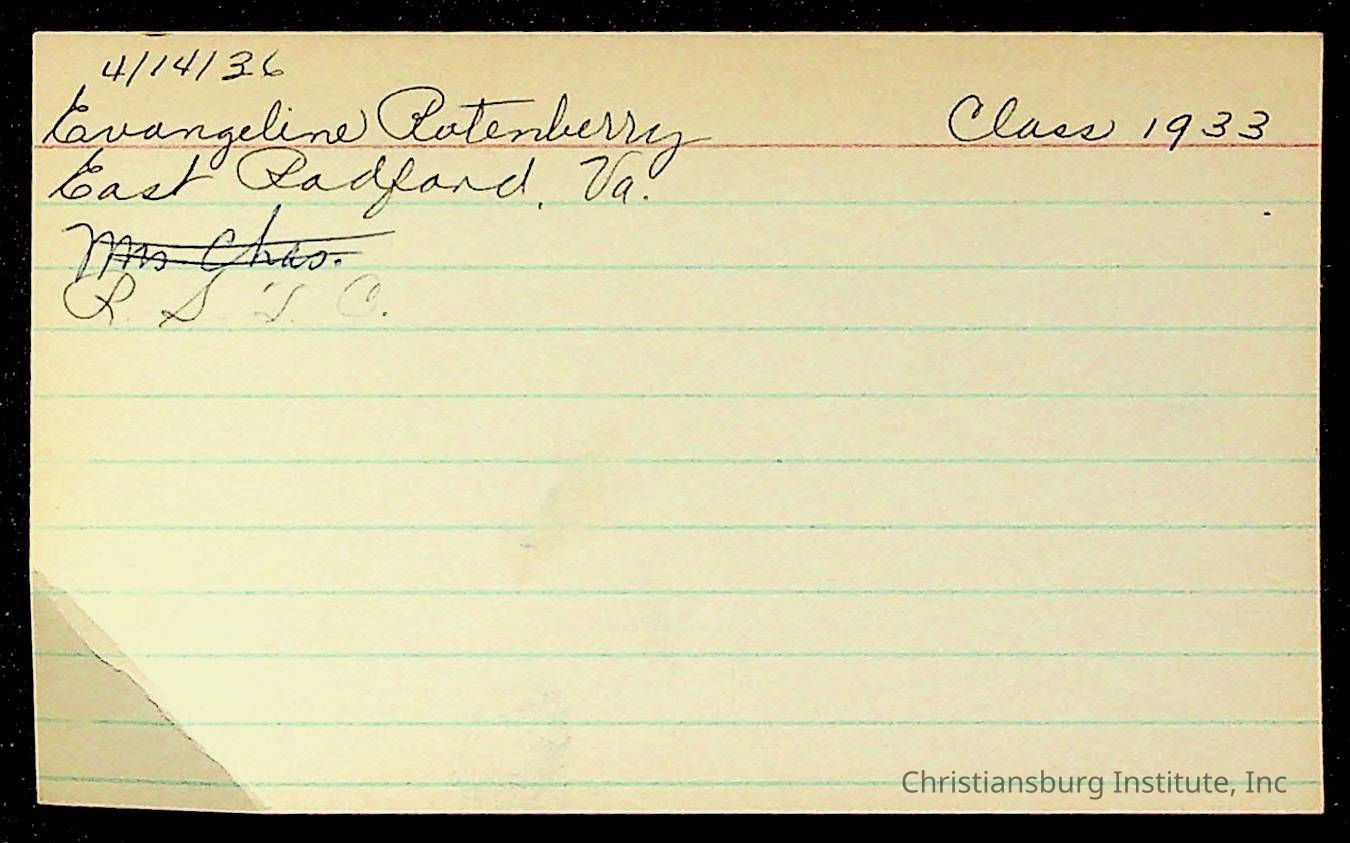 4/14/36
Evangeline Rotenberry Class 1933
East Radford, Va.
Mrs. Chas.
R. S. T. C.
Christiansburg Institute, Inc